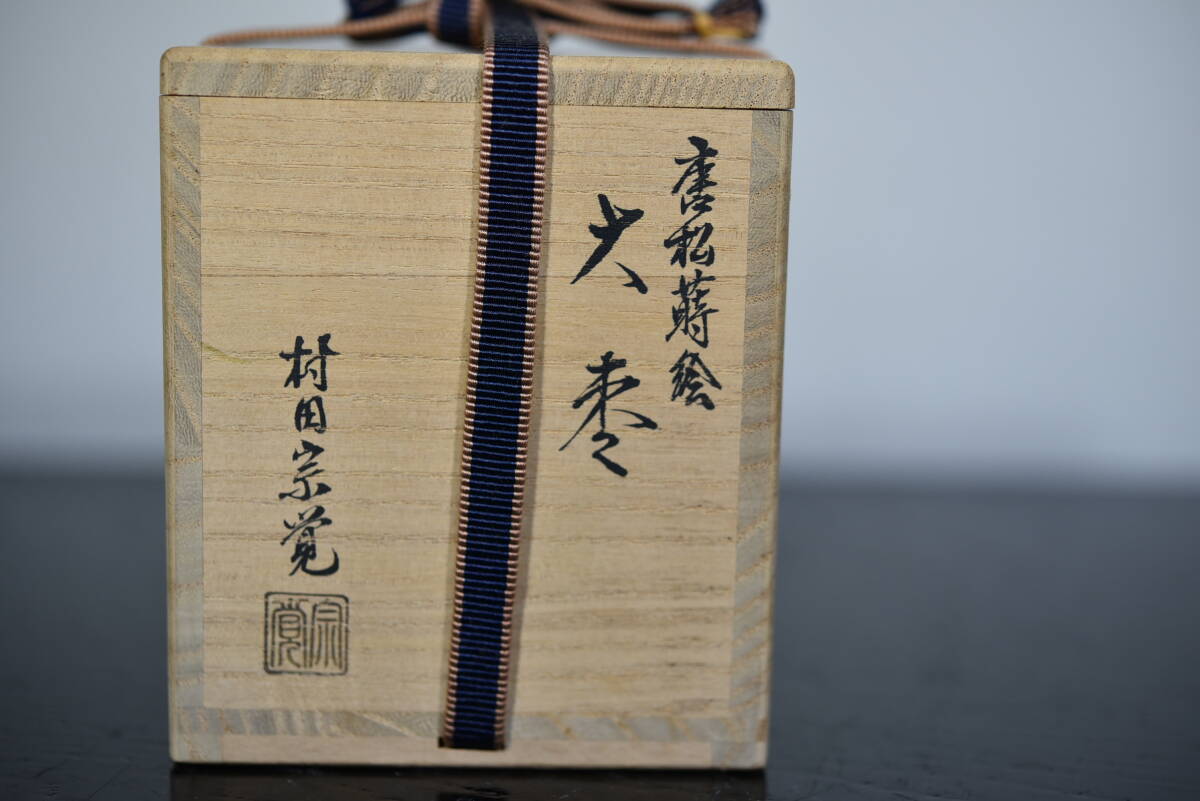 唐松蒔絵
大棗
村田宗覚
宗覚